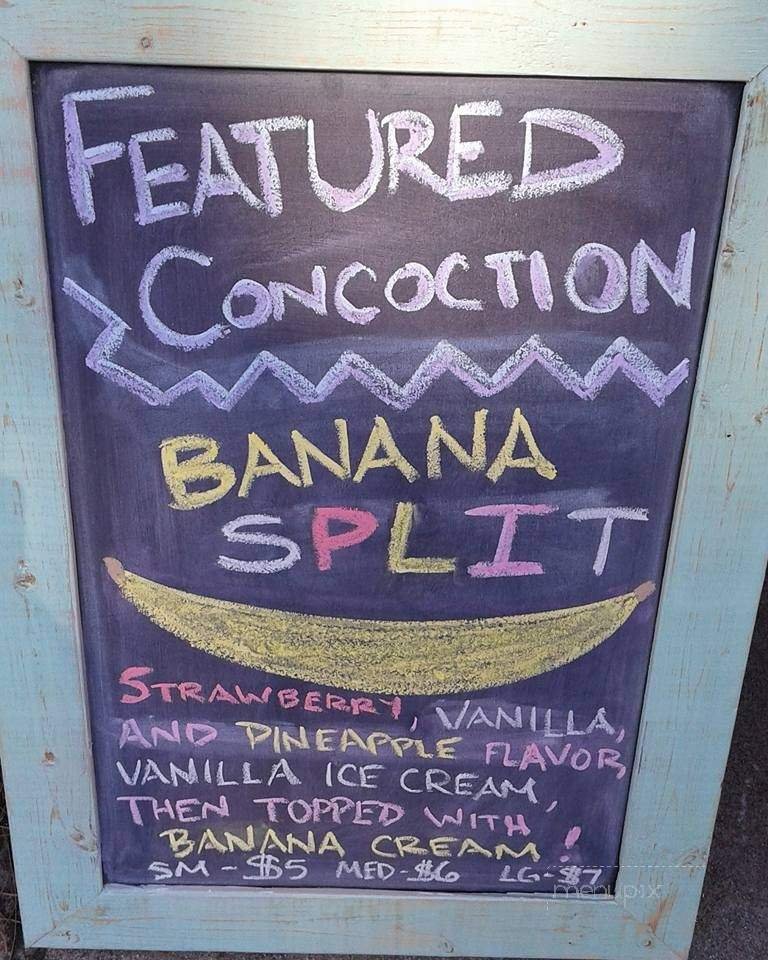 FEATURED
CONCOCTION
BANANA
SPLIT
STRAWBERRY, VANILLA,
AND PINEAPPLE FLAVOR,
VANILLA ICE CREAM,
THEN TOPPED WITH
BANANA CREAM!
SM - $5 MED - $6 LG - $7
menupix